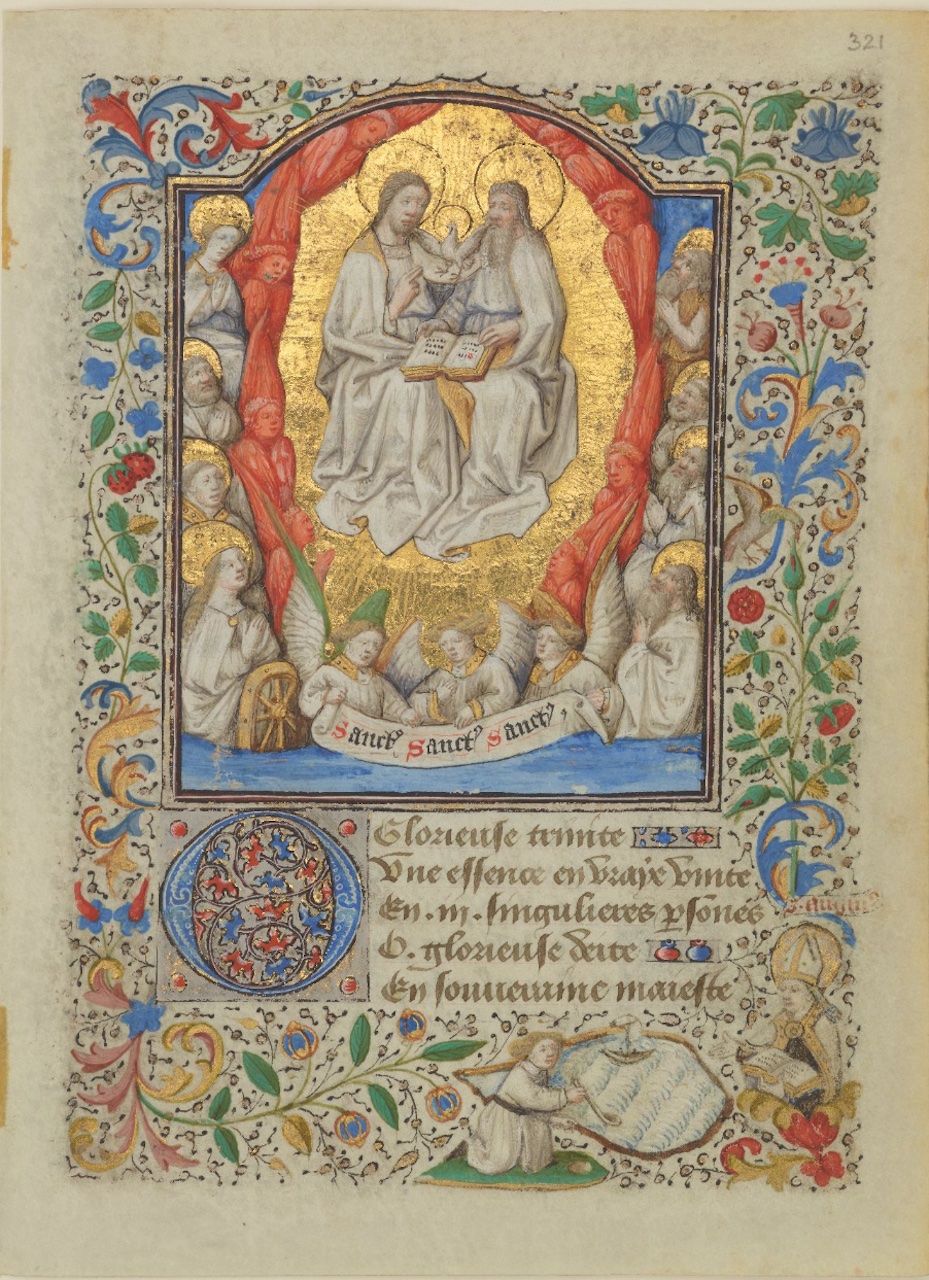 321
Sanctꝰ Sanctꝰ Sanctꝰ
O Glorieuse trinite
Vne essence en vraye vnite
En .iii. singulieres ꝑsones
O. glorieuse deite
En souueraine maieste
s. augusti